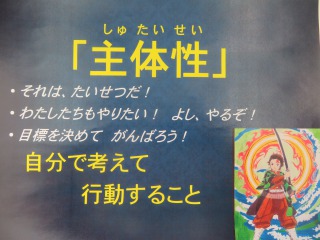 しゅ たい せい
「主体性」
・それは、たいせつだ！
・わたしたちもやりたい！ よし、やるぞ！
・目標を決めて がんばろう！
自分で考えて
行動すること